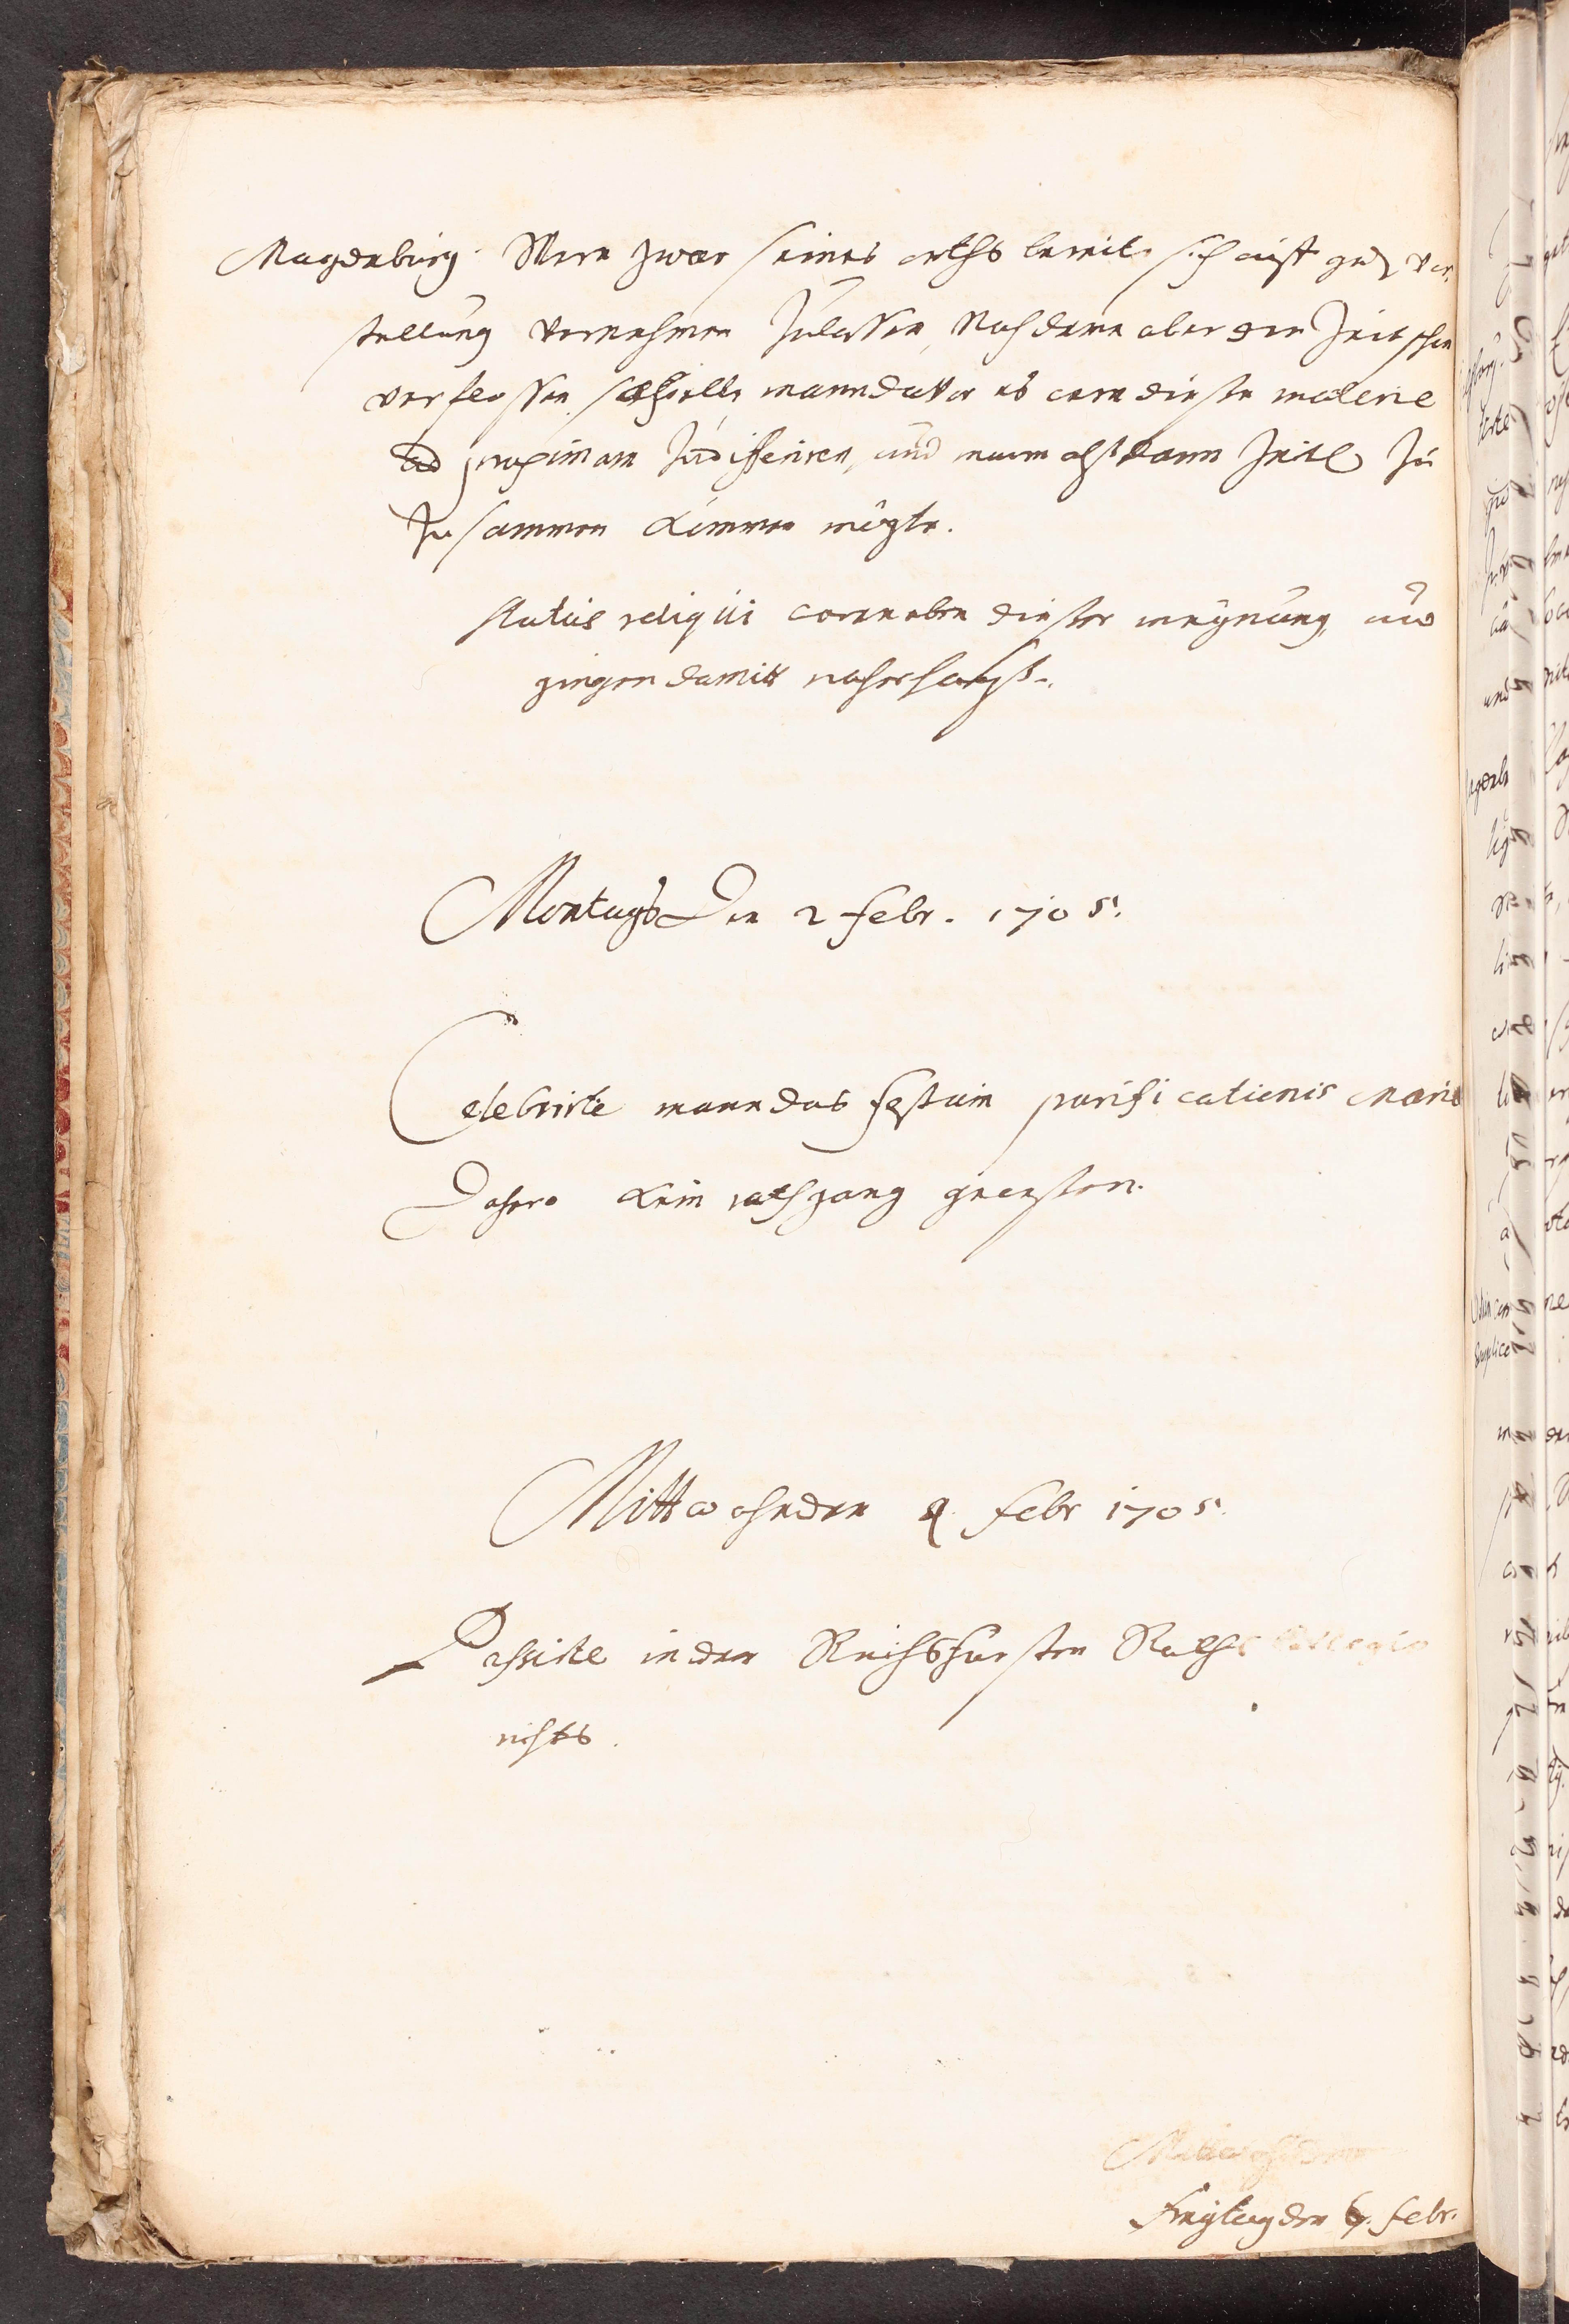 Magdeburg. Were zwar seines orths bereit sich auff gnd. vor-
stellung vernehmen zulassen, Nachdeme aber die Zeit schon
verflossen, so hielte mann davor es were diese materie
ad proximam zudifferiren, und mann alsdann zeitl. zu
zusammen kommen mögte.
Status reliqui waren eben dieser meynung, und
gingen damitt nacher hauß.
Montags Den 2 Febr. 1705.
Celebrirte mann das festum purificationis Mariæ
Dahero kein rathgang gewesen.
Mittwochen den 4. Febr 1705.
Passirte in dem Reichsfürsten Raths Collegio
nichts.
Mittwochs den
Freytag den 6. Febr.